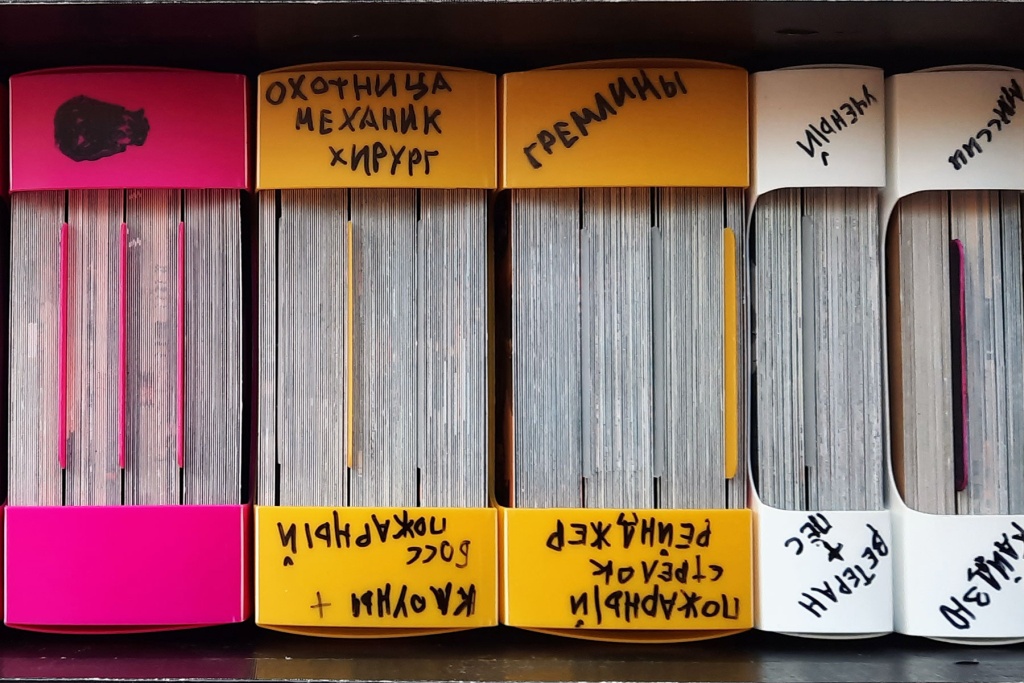 ОХОТНИЦА
МЕХАНИК
ХИРУРГ
КЛОУНЫ +
БОСС
ПОЖАРНЫЙ
ГРЕМЛИНЫ
ПОЖАРНЫЙ
СТРЕЛОК
РЕЙНДЖЕР
УЧЕНЫЙ
ВЕТЕРАН
+
ПЕС
КАЙДЗЮ